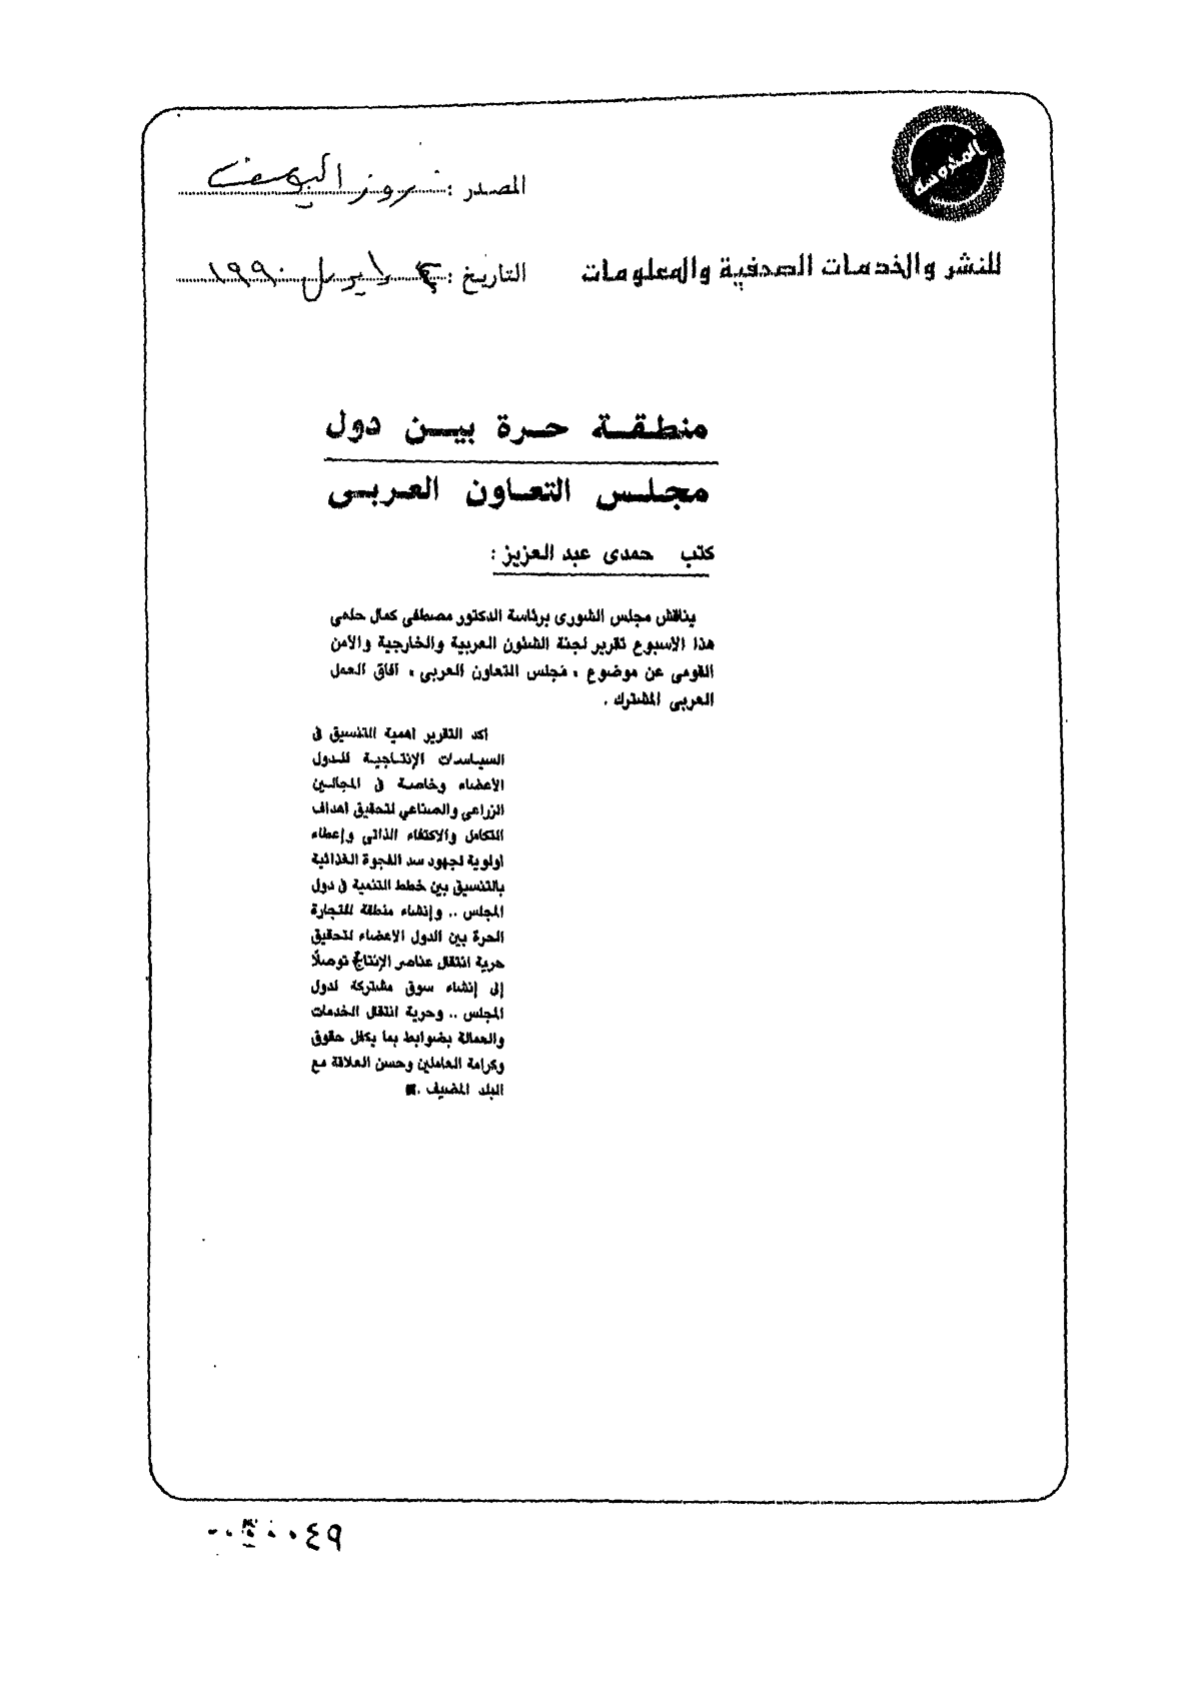 المحروسة
المصدر : روز اليوسف
للنشر والخدمات الصحفية والمعلومات
التاريخ : ابريل ١٩٩٠
منطقة حرة بين دول
مجلس التعاون العربى
كتب حمدى عبد العزيز :
يناقش مجلس الشورى برئاسة الدكتور مصطفى كمال حلمى
هذا الأسبوع تقرير لجنة الشئون العربية والخارجية والأمن
القومى عن موضوع « مجلس التعاون العربى » آفاق العمل
العربى المشترك .
أكد التقرير أهمية التنسيق فى
السياسات الإنتاجية للدول
الأعضاء وخاصة فى المجالين
الزراعى والصناعي لتحقيق أهداف
التكامل والاكتفاء الذاتى وإعطاء
أولوية لجهود سد الفجوة الغذائية
بالتنسيق بين خطط التنمية فى دول
المجلس .. وإنشاء منطقة للتجارة
الحرة بين الدول الأعضاء لتحقيق
حرية انتقال عناصر الإنتاج توصلًا
إلى إنشاء سوق مشتركة لدول
المجلس .. وحرية انتقال الخدمات
والعمالة بضوابط بما يكفل حقوق
وكرامة العاملين وحسن العلاقة مع
البلد المضيف .